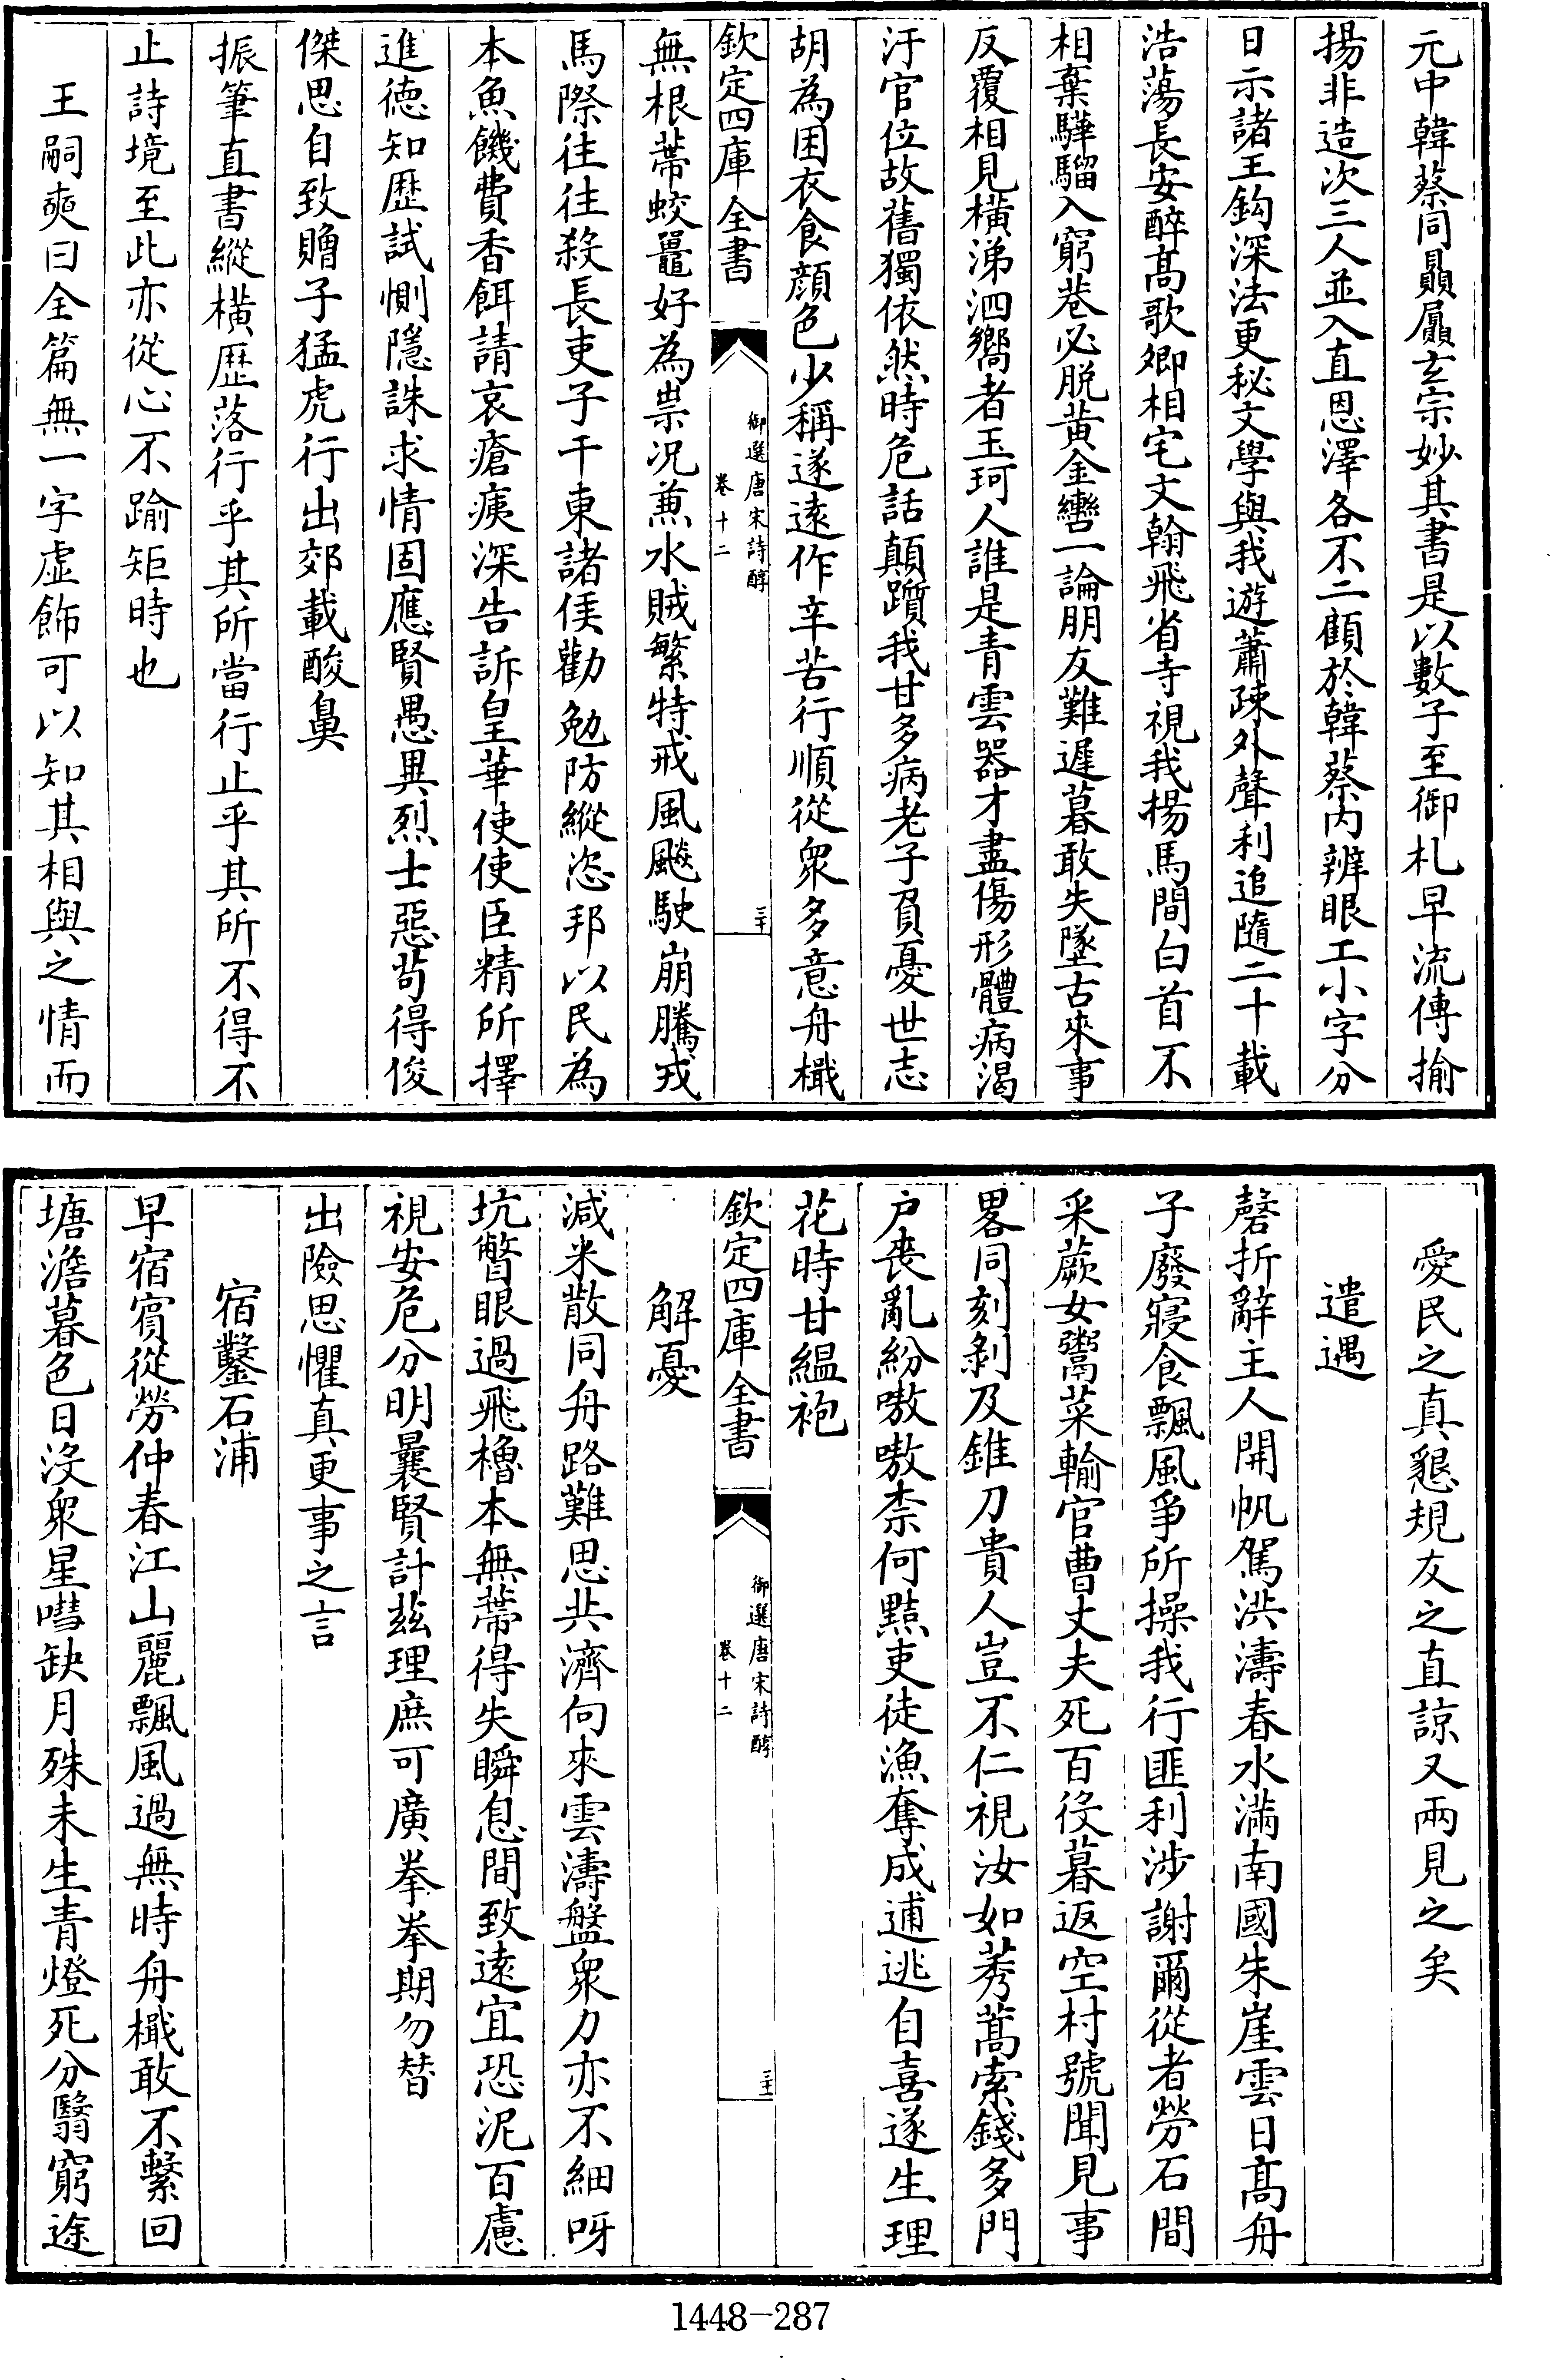 元中韓蔡同贔屭玄宗妙其書是以數子至御札早流傳揄
揚非造次三人並入直恩澤各不二顧於韓蔡内辨眼工小字分
日示諸王鈎深法更秘文學與我遊蕭疎外聲利追隨二十載
浩蕩長安醉髙歌卿相宅文翰飛省寺視我楊馬間白首不
相棄驊騮入窮巷必脱黄金轡一論朋友難遲暮敢失墜古來事
反覆相見橫涕泗嚮者玉珂人誰是青雲器才盡傷形體病渇
汙官位故舊獨依然時危話顛躓我甘多病老子負憂世志
胡為困衣食顔色少稱遂逺作辛苦行順從衆多意舟檝
欽定四庫全書
御選唐宋詩醇
卷十二
三十
無根蔕蛟鼉好為祟况兼水賊繁特戒風飈駛崩騰戎
馬際往往殺長吏子干東諸侯勸勉防縱恣邦以民為
本魚饑費香餌請哀瘡痍深告訴皇華使使臣精所擇
進徳知歴試惻隱誅求情固應賢愚異烈士惡茍得俊
傑思自致贈子猛虎行出郊載酸鼻
振筆直書縱橫歴落行乎其所當行止乎其所不得不
止詩境至此亦從心不踰矩時也
王嗣奭曰全篇無一字虚飾可以知其相與之情而
愛民之真懇規友之直諒又兩見之矣
遣遇
磬折辭主人開帆駕洪濤春水滿南國朱崖雲日髙舟
子廢寢食飄風爭所操我行匪利渉謝爾從者勞石間
采蕨女鬻菜輸官曹丈夫死百役暮返空村號聞見事
畧同刻剝及錐刀貴人豈不仁視汝如莠蒿索錢多門
户喪亂紛嗷嗷柰何黠吏徒漁奪成逋逃自喜遂生理
花時甘緼袍
欽定四庫全書
御選唐宋詩醇
卷十二
三十一
解憂
減米散同舟路難思共濟向來雲濤盤衆力亦不細呀
坑瞥眼過飛櫓本無蔕得失瞬息間致逺宜恐泥百慮
視安危分明曩賢計兹理庶可廣拳拳期勿替
出險思懼真更事之言
宿鑿石浦
早宿賓從勞仲春江山麗飄風過無時舟檝敢不繫回
塘澹暮色日没衆星嘒缺月殊未生青燈死分翳窮途
1448-287